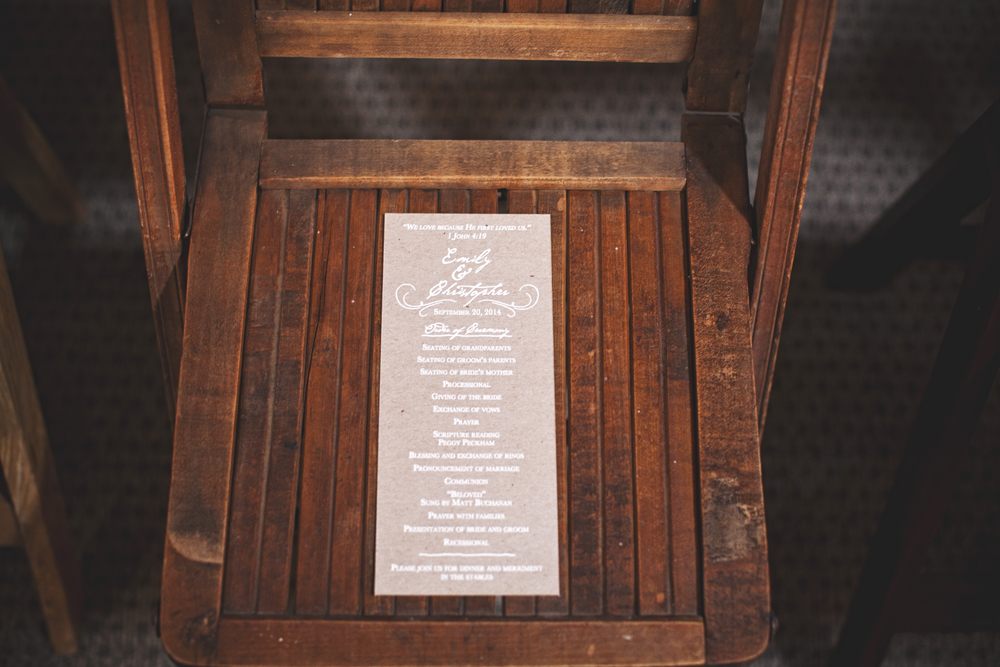 "We love because He first loved us."
1 John 4:19
Emily
&
Christopher
September 20, 2014
Order of Ceremony
Seating of grandparents
Seating of groom's parents
Seating of bride's mother
Processional
Giving of the bride
Exchange of vows
Prayer
Scripture reading
Peggy Peckham
Blessing and exchange of rings
Pronouncement of marriage
Communion
"Beloved"
Sung by Matt Buchanan
Prayer with families
Presentation of bride and groom
Recessional
Please join us for dinner and merriment
in the stables